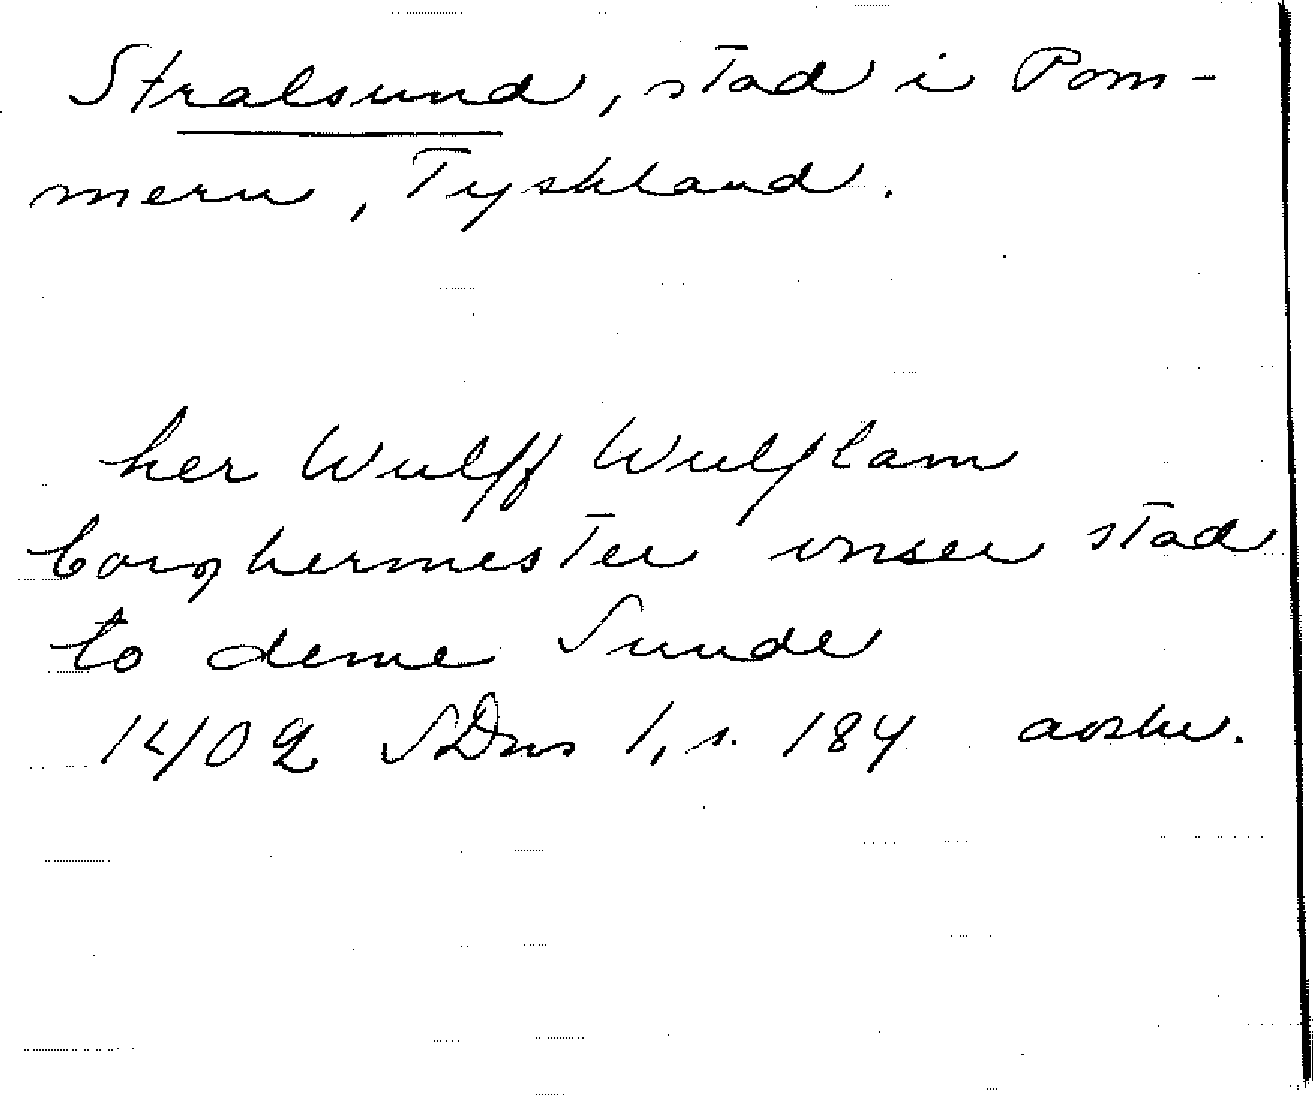 Stralsund, stad i Pom-
mern, Tyskland.
her Wulff Wulflam
borghermester unser stad
to deme Sunde
1402 SDns 1, s. 184 avskr.